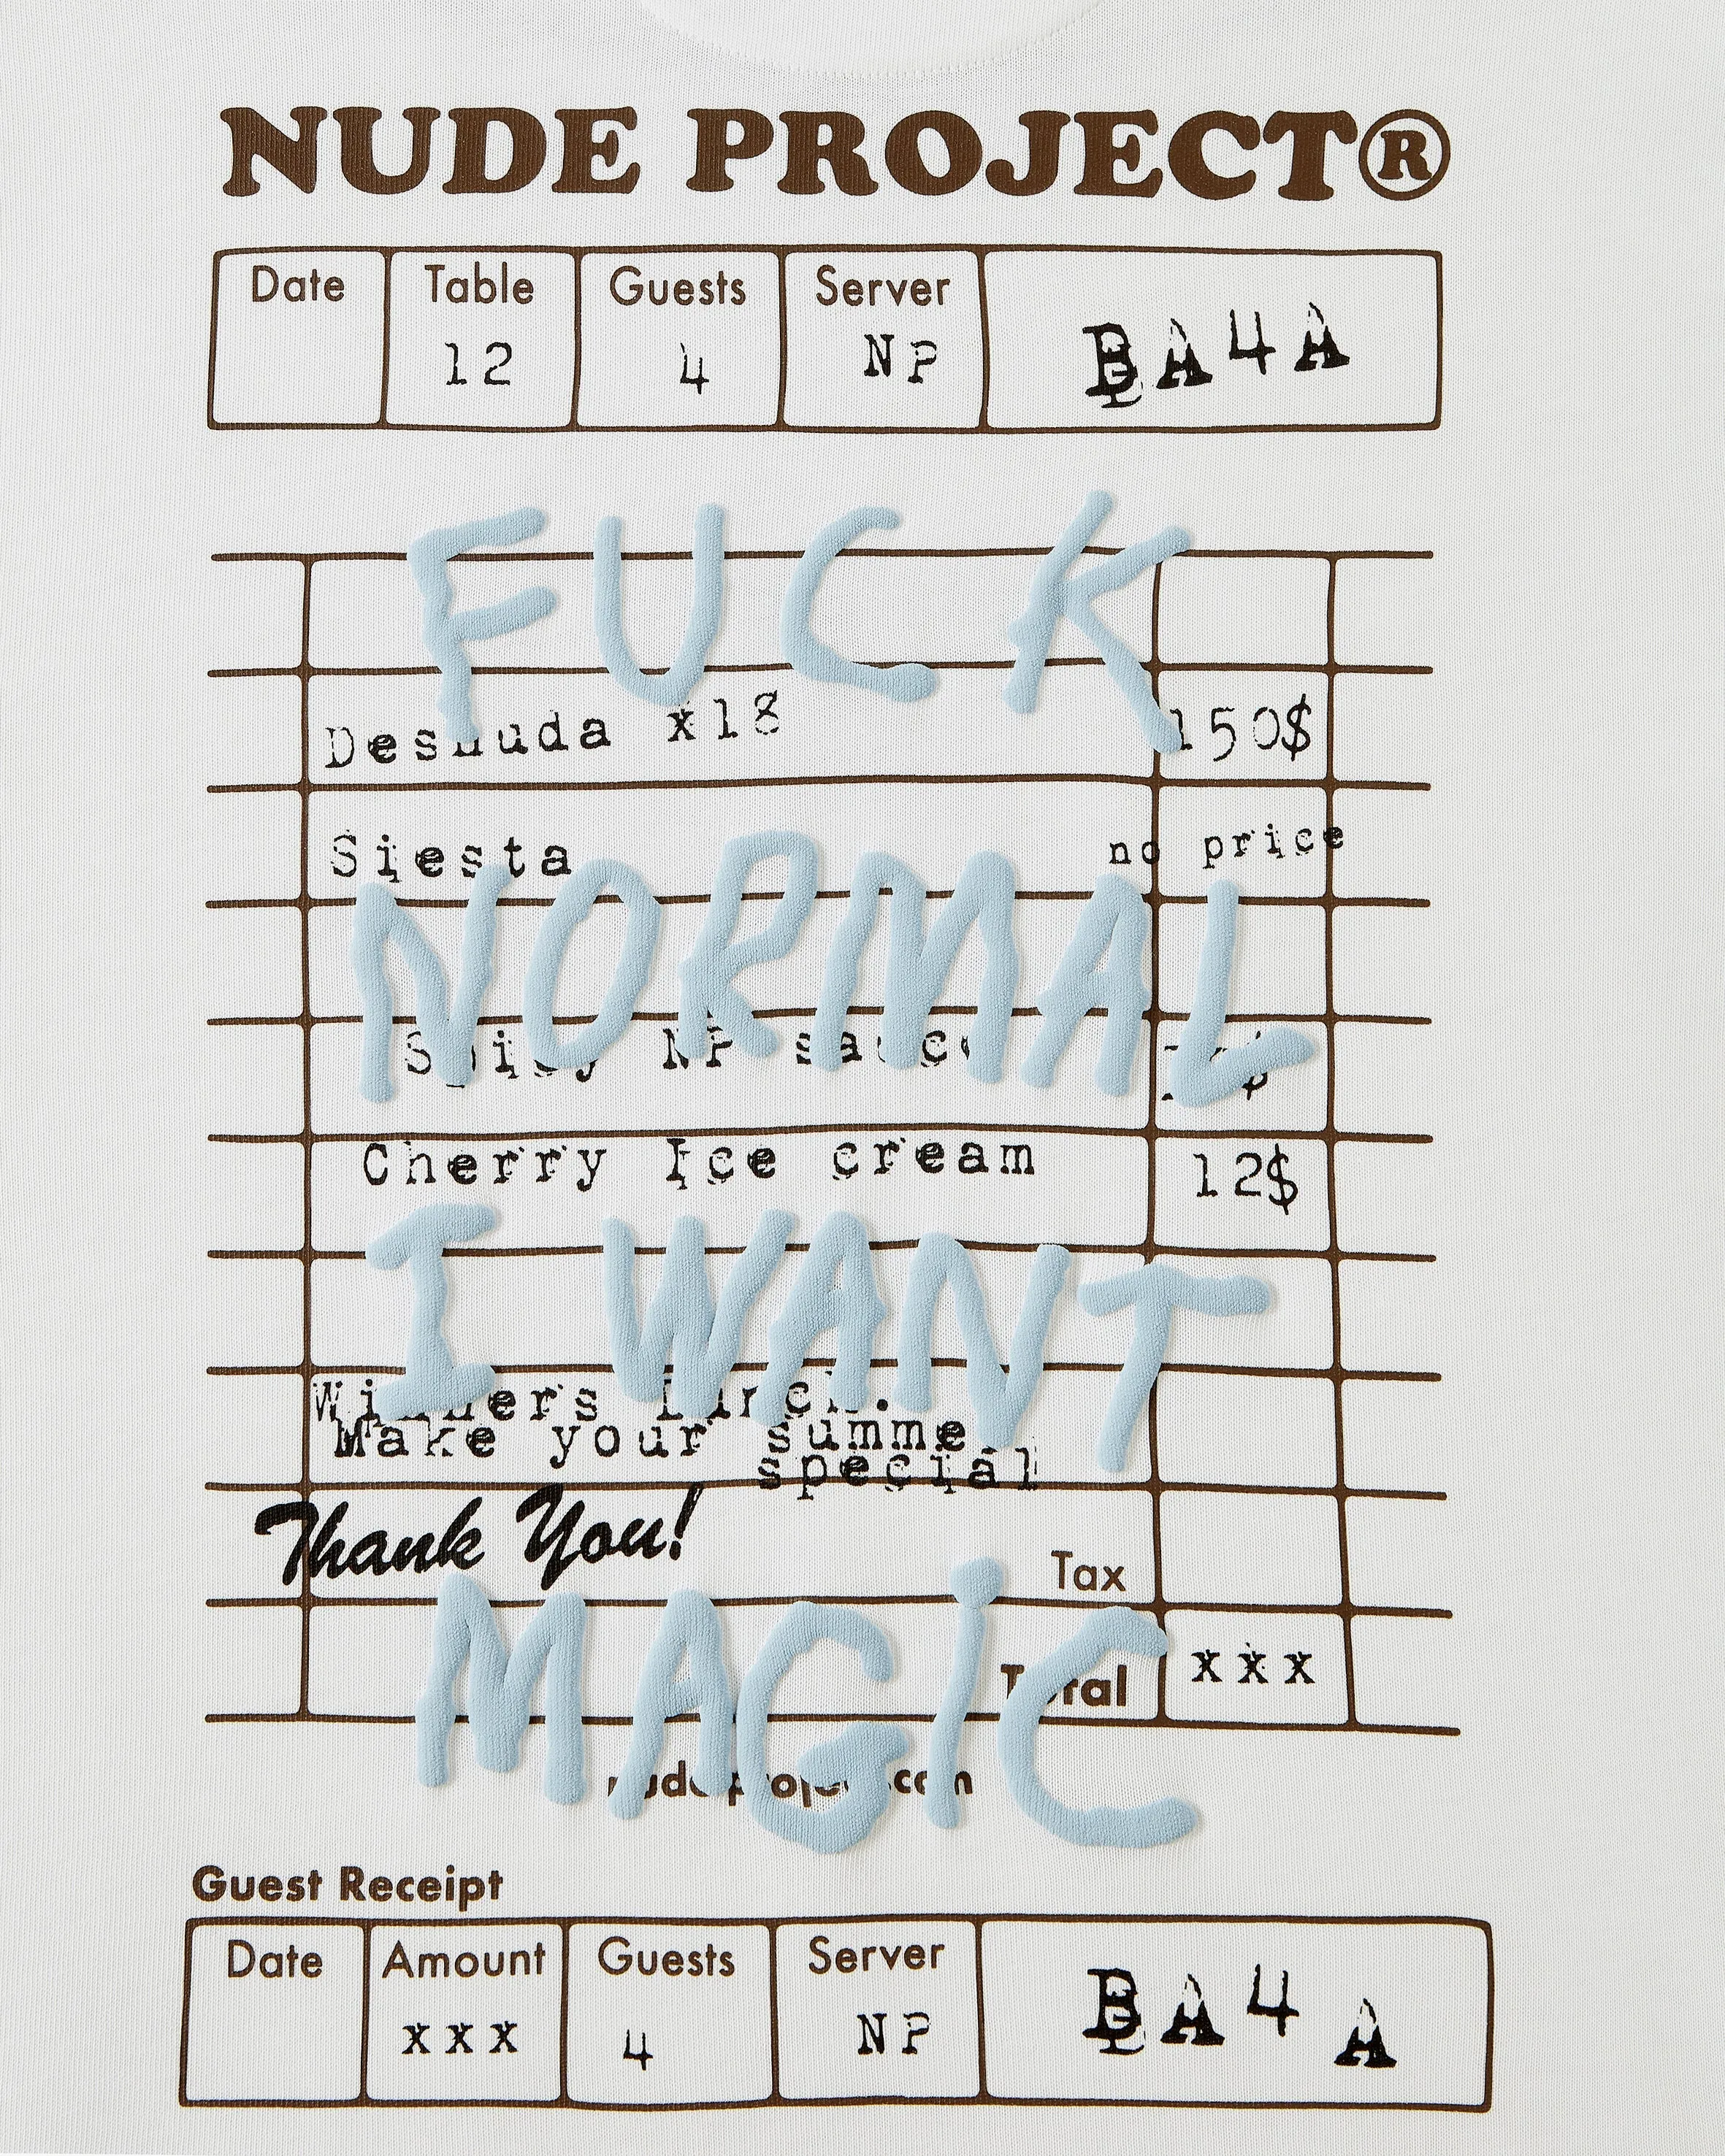 NUDE PROJECT®
Date Table Guests Server
12 4 NP BA4A
FUCK
Desnuda x18 150$
Siesta no price
NORMAL
Spicy NP sauce
Cherry Ice cream 12$
I WANT
Winners lunch.
Make your summe
special
Thank You!
Tax
MAGiC
Total xxx
nudeproject.com
Guest Receipt
Date Amount Guests Server
xxx 4 NP BA4A